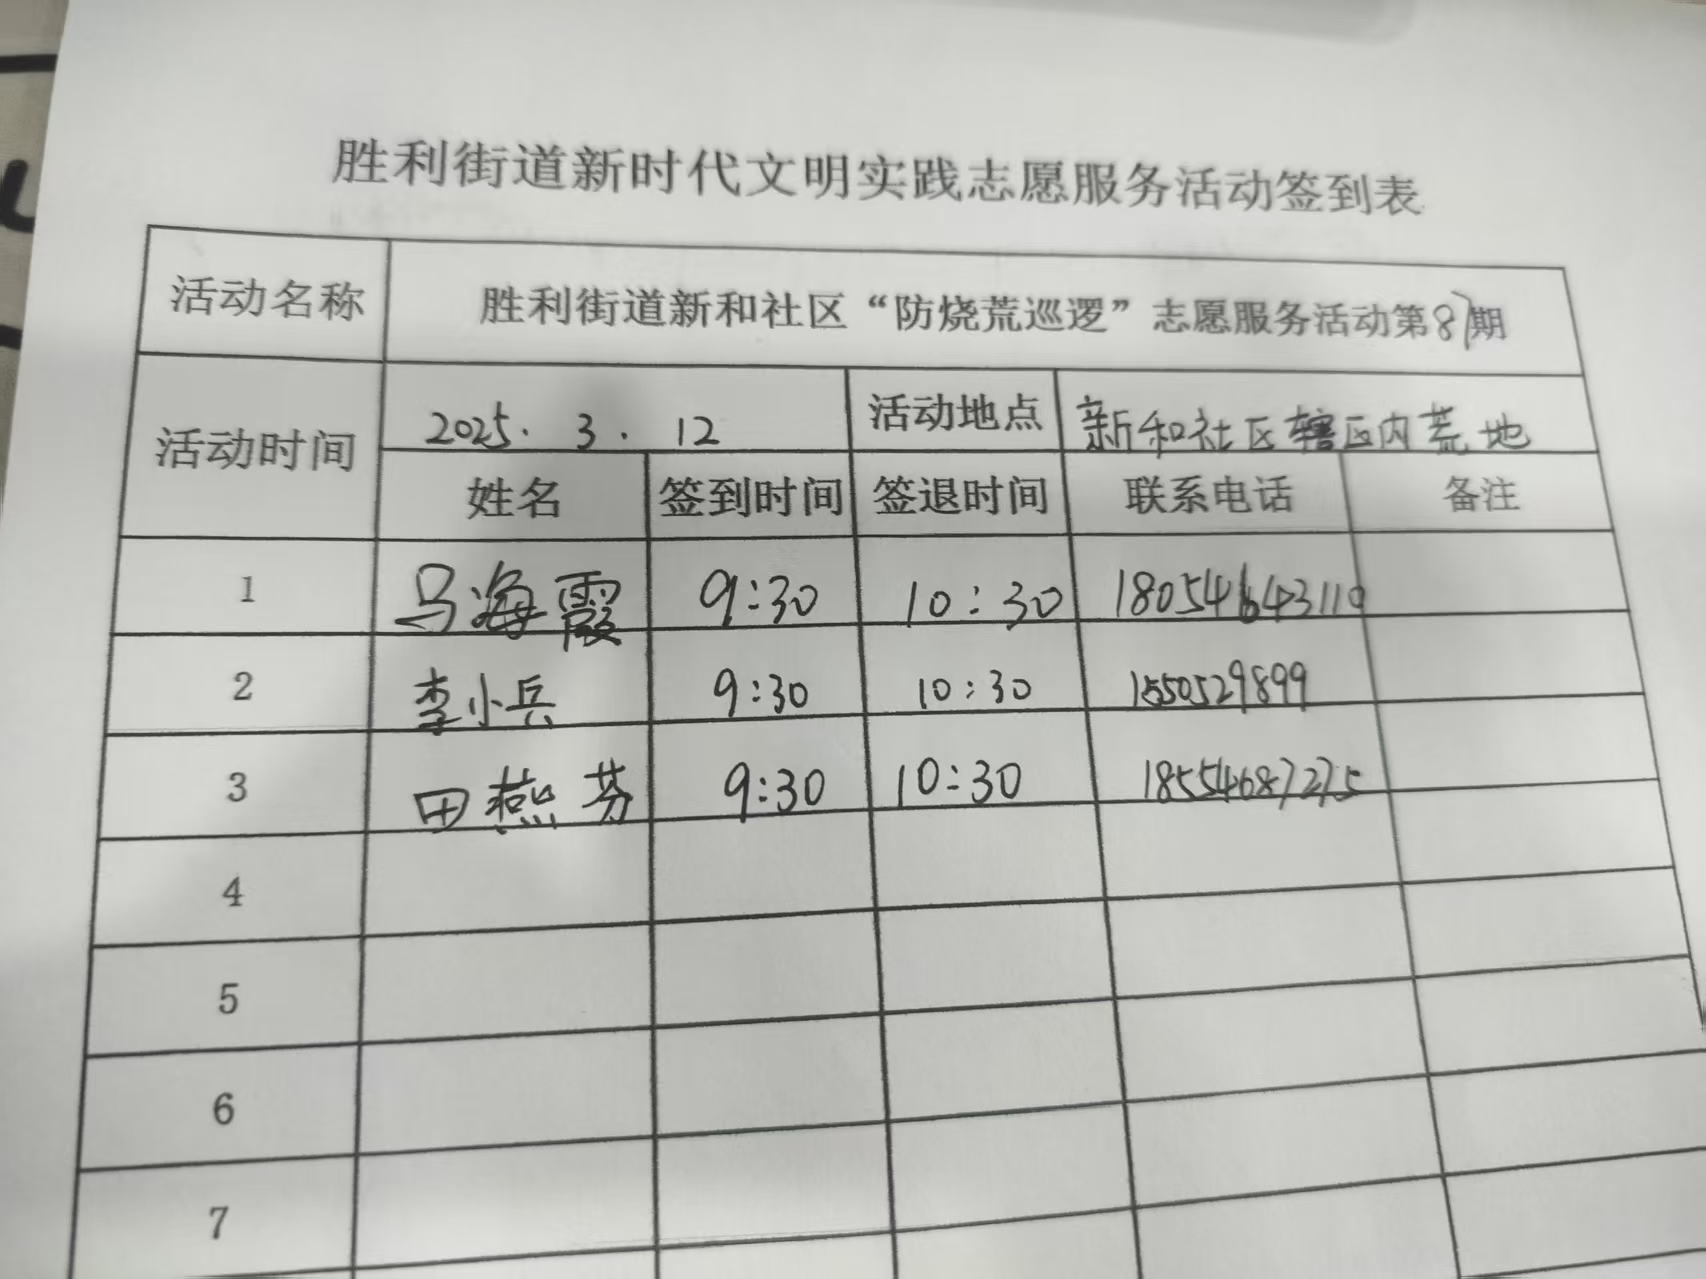 胜利街道新时代文明实践志愿服务活动签到表
活动名称 胜利街道新和社区“防烧荒巡逻”志愿服务活动第87期
活动时间 2025.3.12 活动地点 新和社区辖区内荒地
姓名 签到时间 签退时间 联系电话 备注
1 马海霞 9:30 10:30 18054643110
2 李小兵 9:30 10:30 1550529899
3 田燕芬 9:30 10:30 18554687275
4
5
6
7